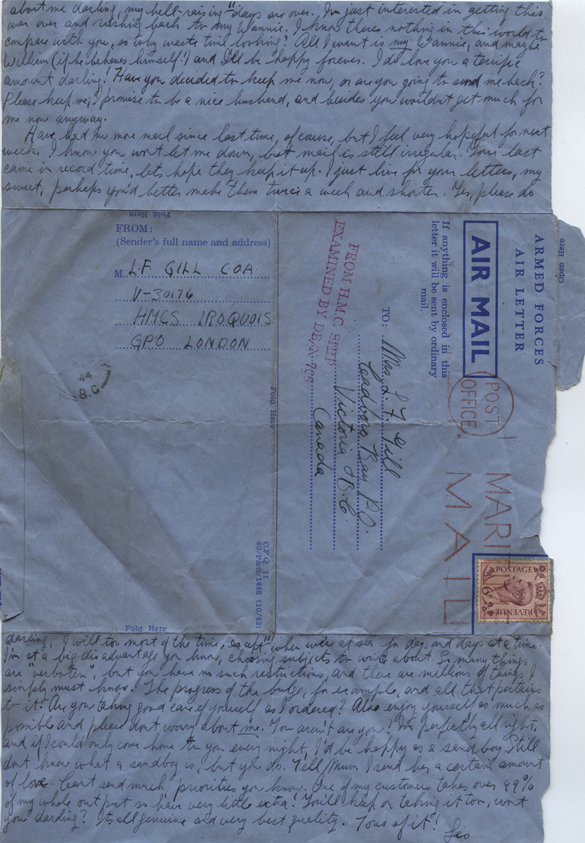 about me darling, my hell-raising "days are over. I'm just interested in getting this
war over and rushing back to my Wannie. I know there's nothing in this world to
compare with you, so why waste time looking? All I want is my Wannie, and maybe
William (if he behaves himself!) and I'll be happy forever. I do love you a terrific
amount darling! Have you decided to keep me now, or are you going to send me back?
Please keep me, I promise to be a nice husband, and besides you wouldn't get much for
me now anyway.
Have had no more mail since last time, of course, but I feel very hopeful for next
week. I know you won't let me down, but mail is still irregular. Your last
came in record time, let's hope they keep it up. I just live for your letters, my
sweet, perhaps you'd better make them twice a week and shorter. Yes, please do
Fold Here
FROM:
(Sender's full name and address)
M. L.F. GILL COA
V-30176
HMCS IROQUOIS
GPO LONDON
44
B.C
Open Here
ARMED FORCES
AIR LETTER
AIR MAIL
If anything is enclosed in this
letter it will be sent by ordinary
mail.
POST
OFFICE
MARI
MAIL
POSTAGE
REVENUE
TO:
Mrs L F Gill
Cadboro Bay P.O.
Victoria B.C
Canada
FROM H.M.C SHIP
EXAMINED BY
Fold Here
Fold Here
darling, I will too most of the time, except when we're at sea for days and days at a time.
I'm at a big disadvantage you know, choosing subjects to write about. So many things
are "verboten", but you have no such restrictions, and there are millions of things I
simply must know! The progress of the bulge, for example, and all that pertains
to it! Are you taking good care of yourself as I ordered? Also enjoy yourself as much as
possible and please don't worry about me. You aren't are you? I'm perfectly all right,
and if I could only come home to you every night, I'd be happy as a sandboy. Still
don't know what a sandboy is, but you do. Tell Mum I send her a certain amount
of love. Can't send much, priorities you know. One of my customers takes over 99%
of my whole out put so have very little extra! You'll keep on taking it too, won't
you darling? It's all genuine and very best quality. Tons of it!
Leo